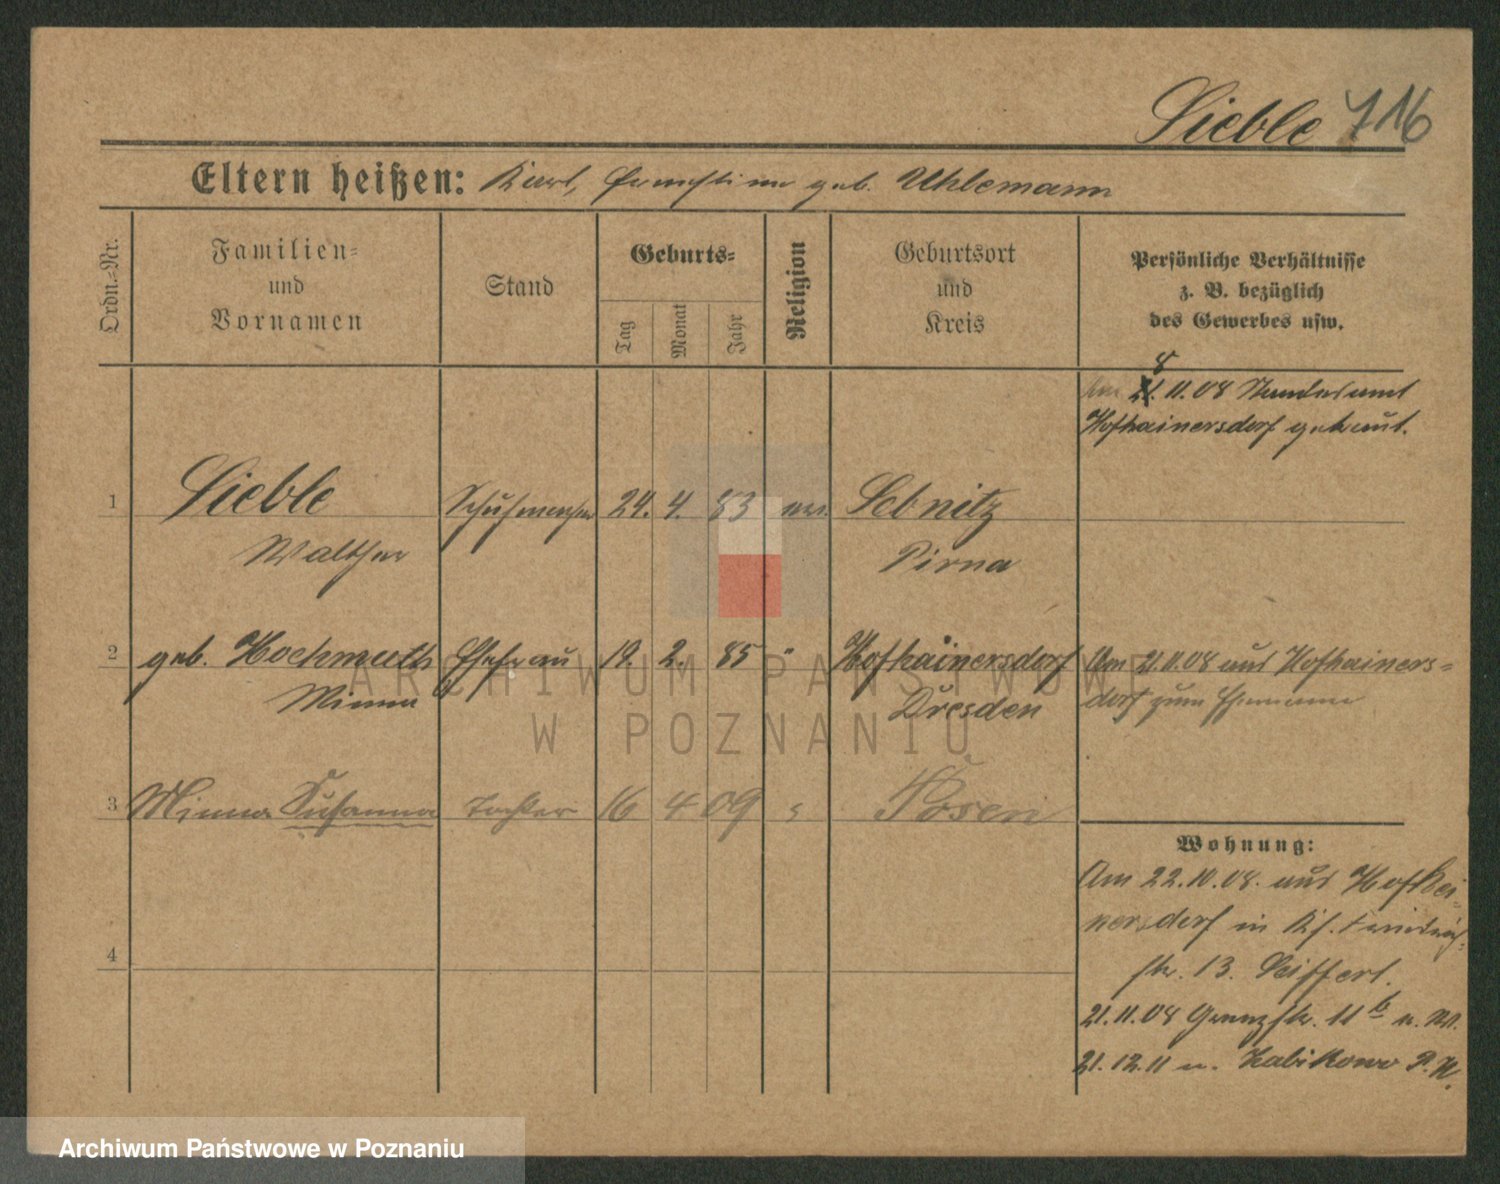 Sieble 716
Eltern heißen: Karl, Ernestine geb. Uhlemann
Ordn.-Nr.
Familien-
und
Vornamen
Stand
Geburts-
Tag
Monat
Jahr
Religion
Geburtsort
und
Kreis
Persönliche Verhältnisse
z. B. bezüglich
des Gewerbes usw.
8
Am 21.11.08 Standesamt
Hofhainersdorf getraut.
1 Sieble Schuhmacher 24. 4. 83 ev. Sebnitz
Walther Pirna
2 geb. Hochmuth Ehefrau 19. 2. 85 " Hofhainersdorf Am 21.11.08 aus Hofhainers-
Minna Dresden dorf zum Ehemann
3 Minna Susanna Tochter 16 4 09 " Posen
Wohnung:
Am 22.10.08. aus Hofhei-
nersdorf in Kais. Friedrich-
str. 13. Seiffert.
4
21.11.08 Grenzstr. 11 b u. W.
21.12.11 n. Zabikowo P. W.
ARCHIWUM PAŃSTWOWE
W POZNANIU
Archiwum Państwowe w Poznaniu